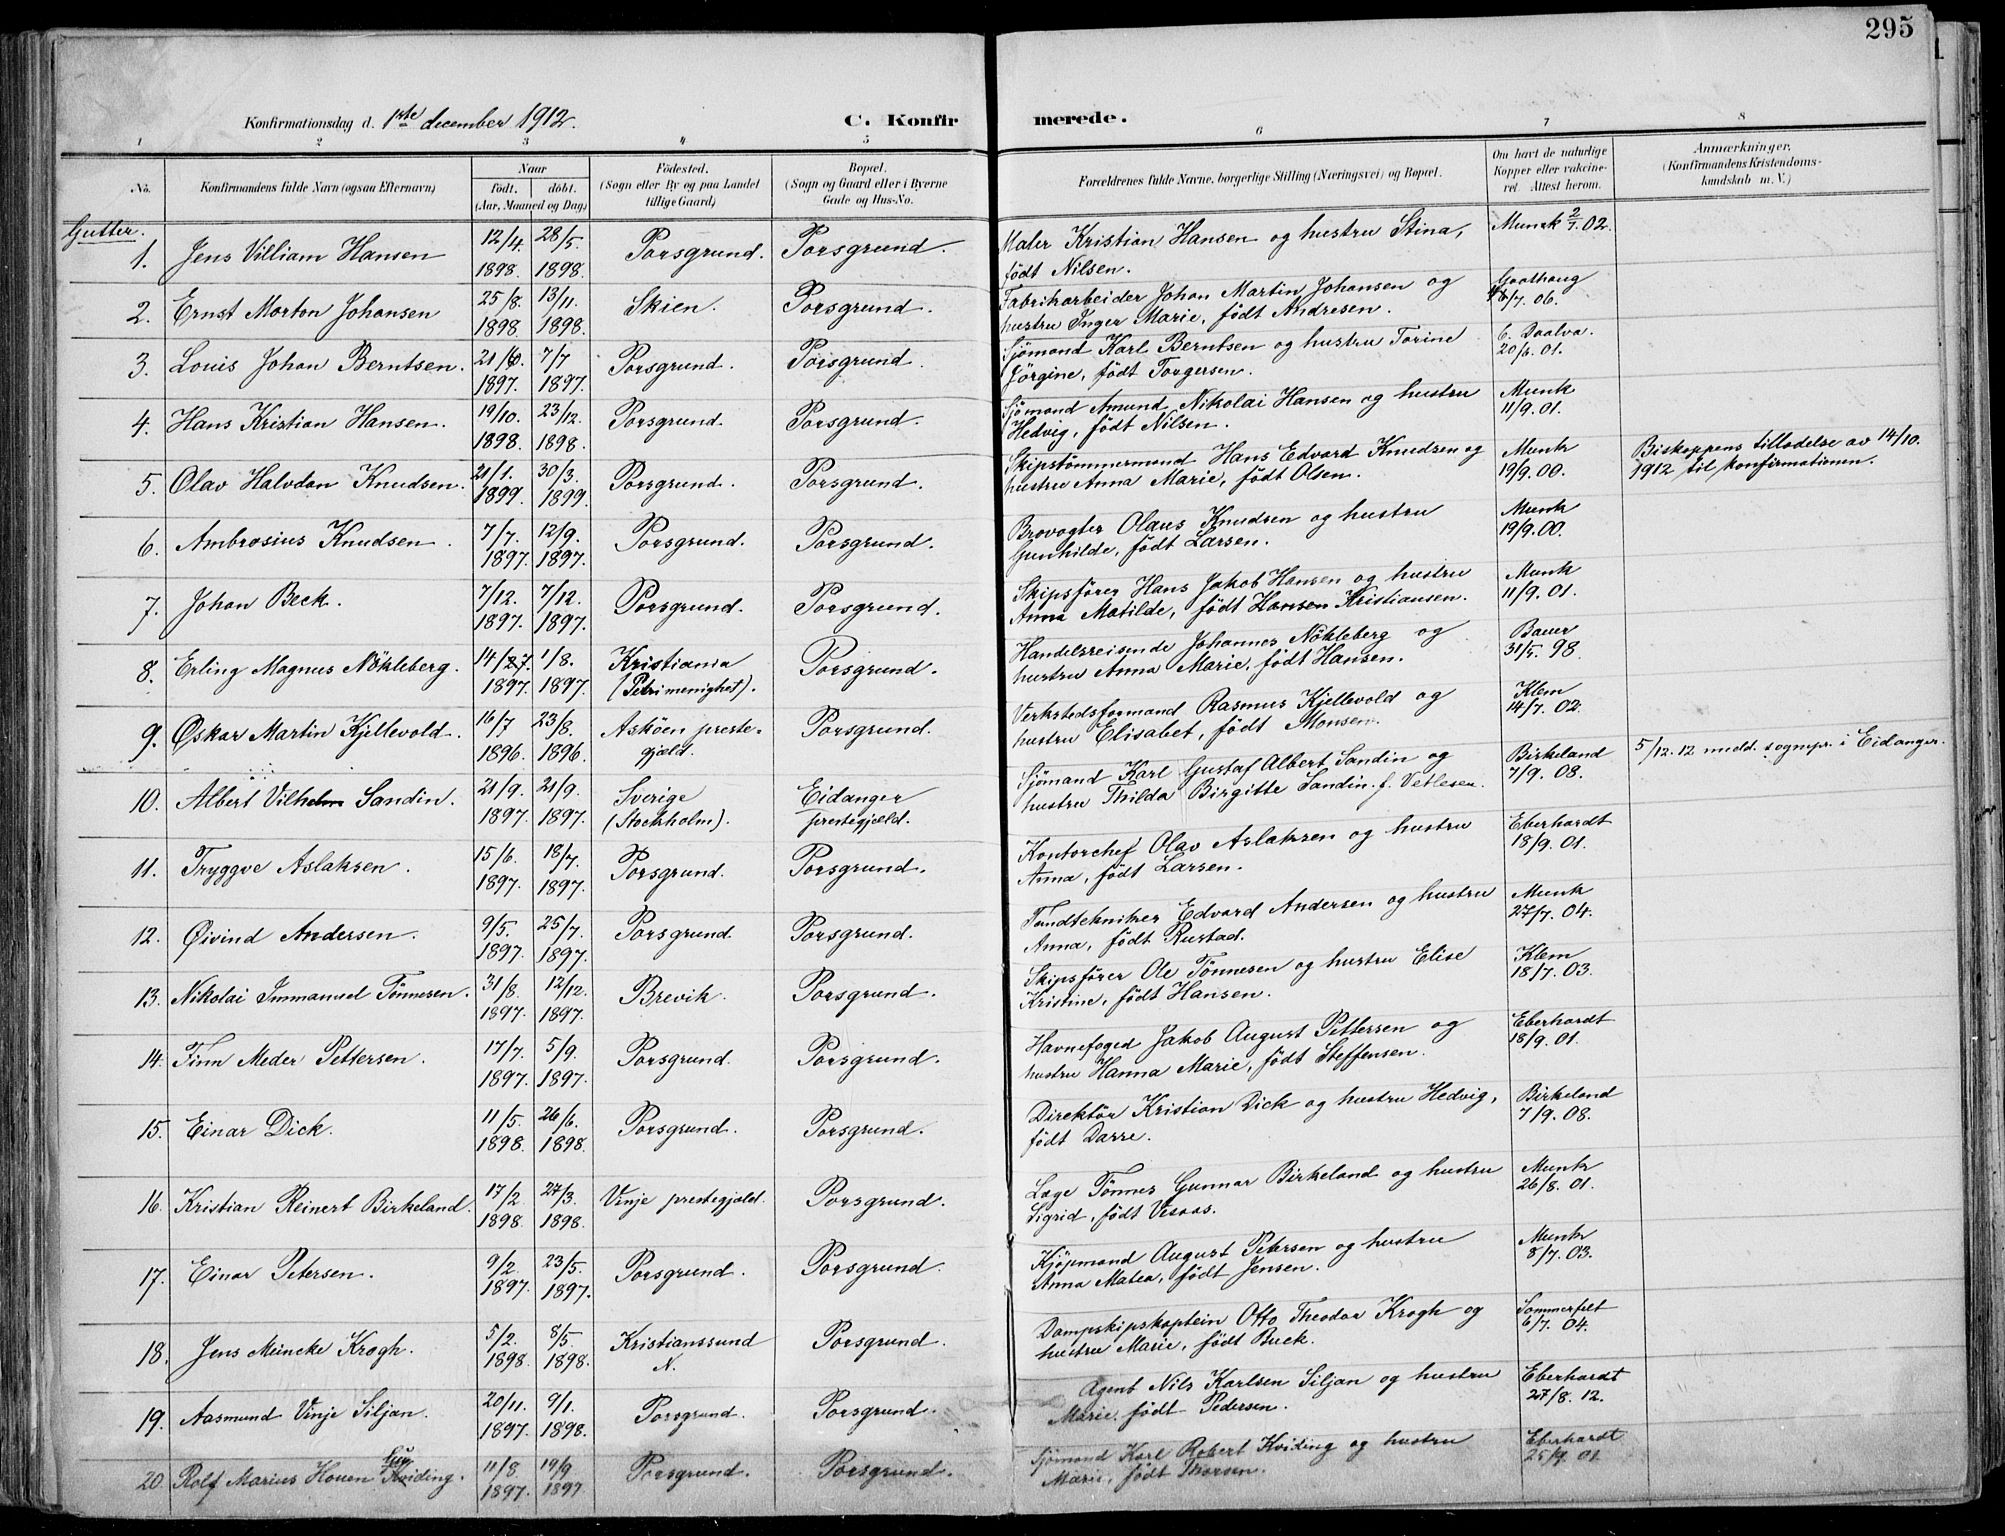 295
Konfirmationsdag d. 1ste december 1912.
C. Konfirmerede.
1 2 3 4 5 6 7 8
No. Konfirmandens fulde Navn (ogsaa Efternavn) Naar født. døbt. (Aar, Maaned og Dag) Fødested. (Sogn eller By og paa Landet tillige Gaard) Bopæl. (Sogn og Gaard eller i Byerne Gade og Hus-No. Forældrenes fulde Navne, borgerlige Stilling (Næringsvei) og Bopæl. Om havt de naturlige Kopper eller vakcineret. Attest herom. Anmærkninger. (Konfirmandens Kristendomskundskab m. V.)
Gutter.
1. Jens Villiam Hansen 12/4 1898. 28/5. 1898. Porsgrund. Porsgrund. Maler Kristian Hansen og hustru Stina, født Nilsen. Munk 2/7. 02.
2. Ernst Morton Johansen 25/8. 1898. 13/11. 1898. Skien. Porsgrund. Fabrikarbeider Johan Martin Johansen og hustru Inger Marie, født Andresen. Gaathaug 6/7. 06.
3. Louis Johan Berntsen. 21/6. 1897. 7/7 1897. Porsgrund. Porsgrund. Sjömand Karl Berntsen og hustru Torine Jörgine, født Torgersen. E. Daalva. 20/6. 01.
4. Hans Kristian Hansen. 19/10. 1898. 23/12. 1898. Porsgrund. Porsgrund. Sjömand Amund Nikolai Hansen og hustru Hedvig, født Nilsen. Munk 11/9. 01.
5. Olav Halvdan Knudsen. 21/1. 1899. 30/3. 1899. Porsgrund. Porsgrund. Skipstömmermand Hans Edvard Knudsen og hustru Anna Marie, født Olsen. Munk 19/9. 00. Biskoppens tilladelse av 14/10. 1912 til konfirmationen.
6. Ambrosius Knudsen. 7/7. 1897. 12/9. 1897. Porsgrund. Porsgrund. Brovogter Olaus Knudsen og hustru Gunhilde, født Larsen. Munk 19/9. 00.
7. Johan Beck. 7/12. 1897. 7/12. 1897. Porsgrund. Porsgrund. Skipsförer Hans Jakob Hansen og hustru Anna Matilde, født Hansen Kristiansen. Munk 11/9. 01.
8. Erling Magnus Nökleberg. 14/7. 1897. 1/8. 1897. Kristiania (Petri menighet). Porsgrund. Handelsreisende Johannes Nökleberg og hustru Anna Marie, født Hansen. Bauer 31/5. 98.
9. Oskar Martin Kjellevold. 16/7 1896. 23/8. 1896. Asköen prestegjæld. Porsgrund. Verkstedsformand Rasmus Kjellevold og hustru Elisabet, født Monsen. Klem 14/7. 02.
10. Albert Vilhelm Sandin. 21/9. 1897. 21/9. 1897. Sverige (Stockholm). Eidanger prestegjæld. Sjömand Karl Gustaf Albert Sandin og hustru Thilda Birgitte Sandin f. Vetlesen. Birkeland 7/9. 08. 5/12. 12 medd. sognepr. i Eidanger.
11. Tryggve Aslaksen. 15/6. 1897. 18/7. 1897. Porsgrund. Porsgrund. Kontorchef Olav Aslaksen og hustru Anna, født Larsen. Eberhardt 18/9. 01.
12. Øivind Andersen. 9/5. 1897. 25/7. 1897. Porsgrund. Porsgrund. Tandtekniker Edvard Andersen og hustru Anna, født Rustad. Munk 27/7. 04.
13. Nikolai Immanuel Tönnesen. 31/8. 1897. 12/12. 1897. Brevik. Porsgrund. Skipsförer Ole Tönnesen og hustru Elise Kristine, født Hansen. Klem 18/7. 03.
14. Finn Meder Pettersen. 17/7. 1897. 5/9. 1897. Porsgrund. Porsgrund. Havnefoged Jakob August Pettersen og hustru Hanna Marie, født Steffensen. Eberhardt 18/9. 01.
15. Einar Dick. 11/5. 1898. 26/6. 1898. Porsgrund. Porsgrund. Direktör Kristian Dick og hustru Hedvig, født Darre. Birkeland 7/9. 08.
16. Kristian Reinert Birkeland. 17/2 1898. 27/3. 1898. Vinje prestegjæld. Porsgrund. Læge Tönnes Gunnar Birkeland og hustru Sigrid, født Vesaas. Munk 26/8. 01.
17. Einar Petersen. 9/2. 1897. 23/5. 1897. Porsgrund. Porsgrund. Kjöpmand August Petersen og hustru Anna Matea, født Jensen. Munk 8/7. 03.
18. Jens Meincke Krogh. 5/2. 1898. 8/5. 1898. Kristianssund N. Porsgrund. Dampskipskaptein Otto Theodor Krogh og hustru Marie, født Buck. Sommerfelt 6/7. 04.
19. Aasmund Vinje Siljan. 20/11. 1897. 9/1. 1898. Porsgrund. Porsgrund. Agent Nils Karlsen Siljan og hustru Marie, født Pedersen. Eberhardt 27/8. 12.
20. Rolf Marius Houen Kviding. 11/8. 1897. 19/9 1897 Porsgrund. Porsgrund. Sjömand Karl Robert Kviding og hustru Marie, født Thorsen. Eberhardt 25/9. 01